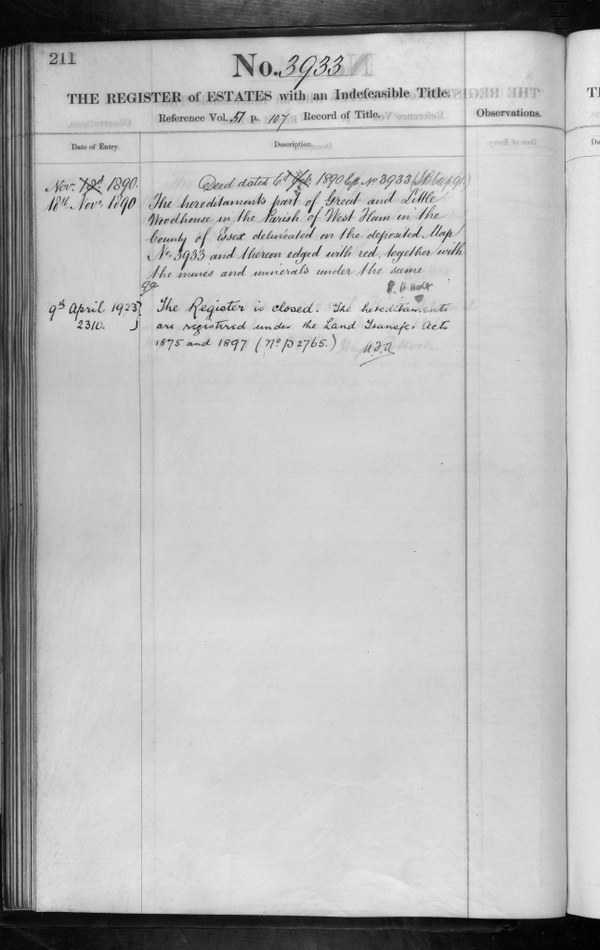 211
No. 3933
THE REGISTER of ESTATES with an Indefeasible Title.
Reference Vol. 51 p. 107 Record of Title.
Observations.
Date of Entry.
Description.
Nov. 1890.
Deed dated 6th 1890 No 3933
18th Nov. 1890
The hereditaments part of Great and Little
Woodhouse in the Parish of West Ham in the
County of Essex delineated on the deposited Map
No. 3933 and thereon edged with red, together with
the mines and minerals under the same
9th April 1923
2310.
The Register is closed. The hereditaments
are registered under the Land Transfer Acts
1875 and 1897 (No. P 2765.)